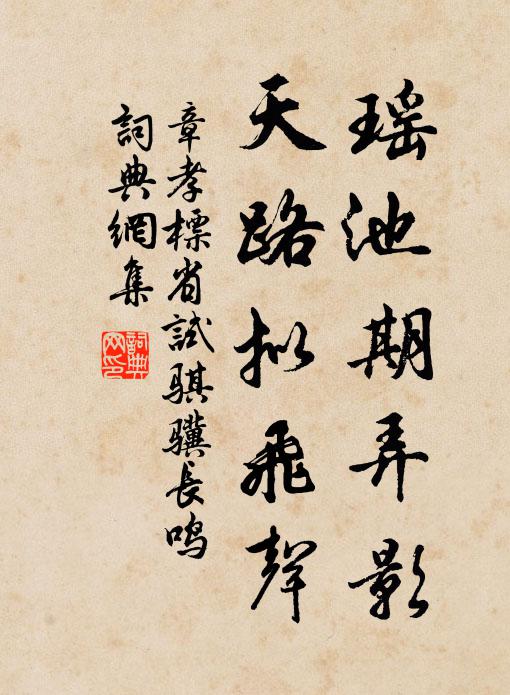 瑶池期弄影
天路拟飛聲
章孝標省試騏驥長鳴
詞典網集
詞典網印